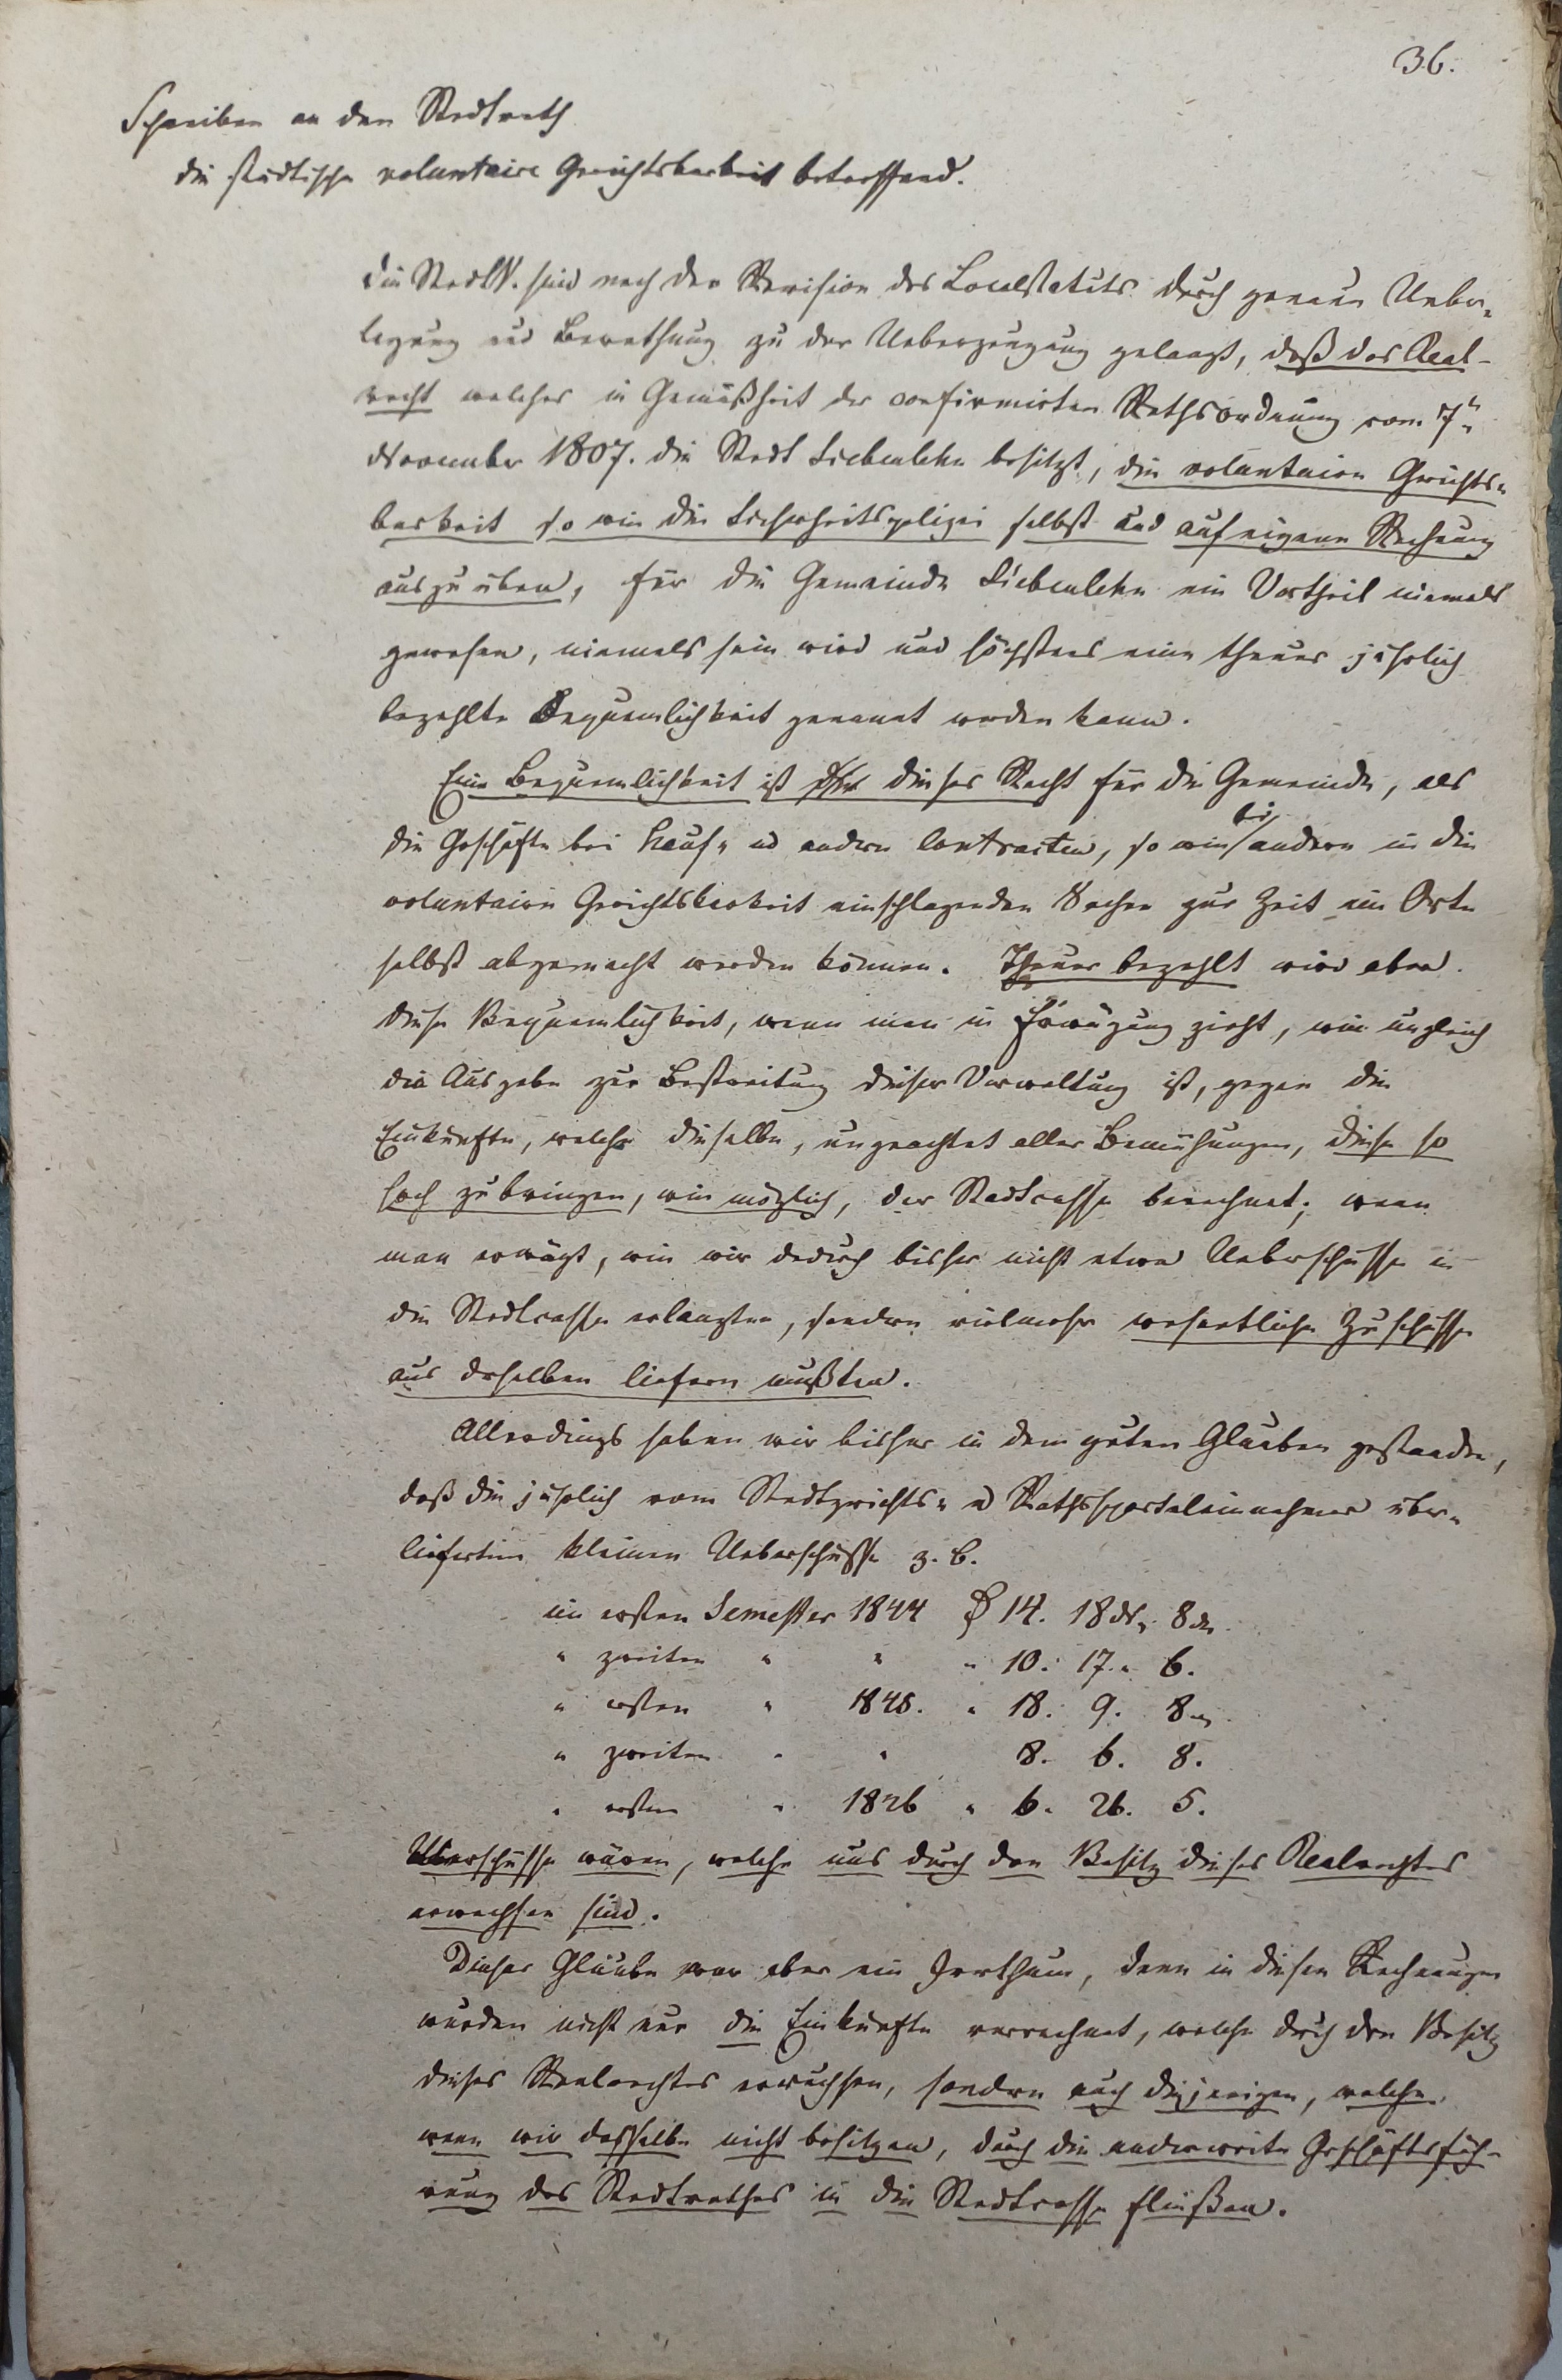 36.
Schreiben an den Stadtrath
die städtische voluntaire Gerichtsbarkeit betreffend.
Die StadtV. sind nach der Revision des Localstatuts durch genaue Ueber-
legung und Berathung zu der Ueberzeugung gelangt, daß das Real-
recht welches in Gemäßheit der confirmirten Rathsordnung vom 7n
November 1807. die Stadt Siebenlehn besitzt, die voluntaire Gerichts-
barkeit so wie die Sicherheitspolizei selbst und auf eigene Rechnung
auszuüben, für die Gemeinde Siebenlehn ein Vortheil niemals
gewesen, niemals sein wird und höchstens eine theuer jährlich
bezahlte Bequemlichkeit genannt werden kann.
Eine Bequemlichkeit ist dieses Recht für die Gemeinde, als
die Geschäfte bei Kauf- und andern Contracten, so wie bei andern in die
voluntaire Gerichtsbarkeit einschlagenden Sachen zur Zeit im Orte
selbst abgemacht werden können. Theuer bezahlt wird aber
diese Bequemlichkeit, wenn man in Erwägung zieht, wie ungleich
die Ausgabe zur Bestreitung dieser Verwaltung ist, gegen die
Einkünfte, welche dieselbe, ungeachtet aller Bemühungen, diese so
hoch zu bringen, wie möglich, der Stadtcasse berechnet; wenn
man erwägt, wie wir dadurch bisher nicht etwa Ueberschüsse in
die Stadtcasse erlangten, sondern vielmehr wesentliche Zuschüsse
aus derselben liefern mußten.
Allerdings haben wir bisher in dem guten Glauben gestanden,
daß die jährlich vom Stadtgerichts- u Rathssporteleinnehmer über-
lieferten kleinen Ueberschüsse z. B.
im ersten Semester 1844 14. 18 8
" zweiten " " " 10. 17. " 6.
" ersten " 1845. " 18. 9. 8
" zweiten " " 8. 6. 8.
" ersten " 1846 " 6. 26. 5.
Ueberschüsse wären, welche uns durch den Besitz dieses Realrechtes
erwachsen sind.
Dieser Glaube war aber ein Irrthum, denn in diesen Rechnungen
wurden nicht nur die Einkünfte verrechnet, welche durch den Besitz
dieses Realrechtes erwuchsen, sondern auch diejenigen, welche,
wenn wir dasselbe nicht besitzen, durch die anderweite Geschäftsfüh-
rung des Stadtrathes in die Stadtcasse fließen.